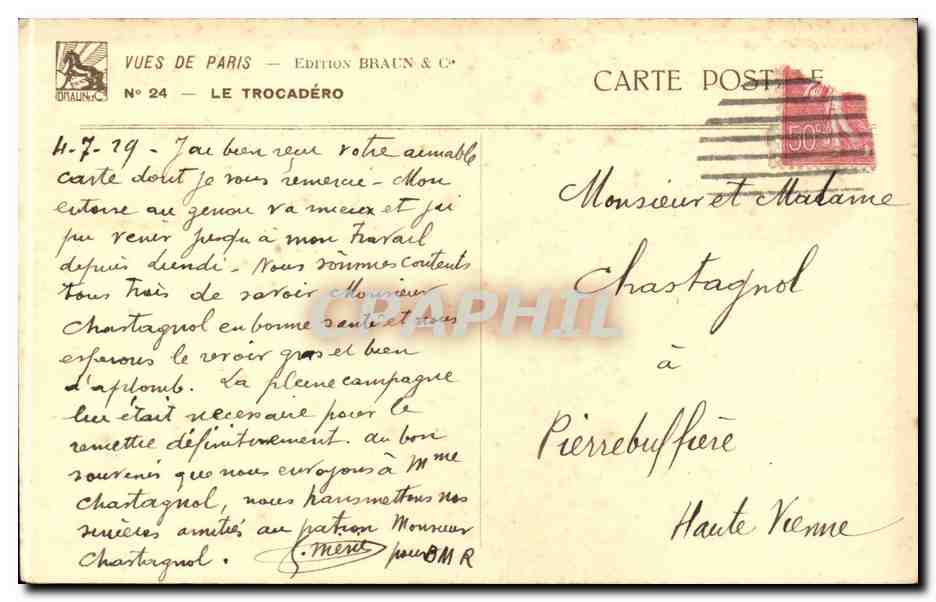 BRAUN & Cie
VUES DE PARIS — EDITION BRAUN & Cie
No 24 — LE TROCADÉRO
CARTE POSTALE
50c
4-7-29 - J'ai bien reçu votre aimable
carte dont je vous remercie - Mon
entorse au genou va mieux et j'ai
pu venir jusqu'à mon travail
depuis lundi - Nous sommes contents
tous trois de savoir Monsieur
Chastagnol en bonne santé et nous
espérons le revoir gros et bien
d'aplomb. La pleine campagne
lui était nécessaire pour le
remettre définitivement. Au bon
souvenir que nous envoyons à Mme
Chastagnol, nous transmettons nos
sincères amitiés au patron Monsieur
Chastagnol.
pour BMR
Monsieur et Madame
Chastagnol
à
Pierrebuffière
Haute Vienne
CPAPHIL